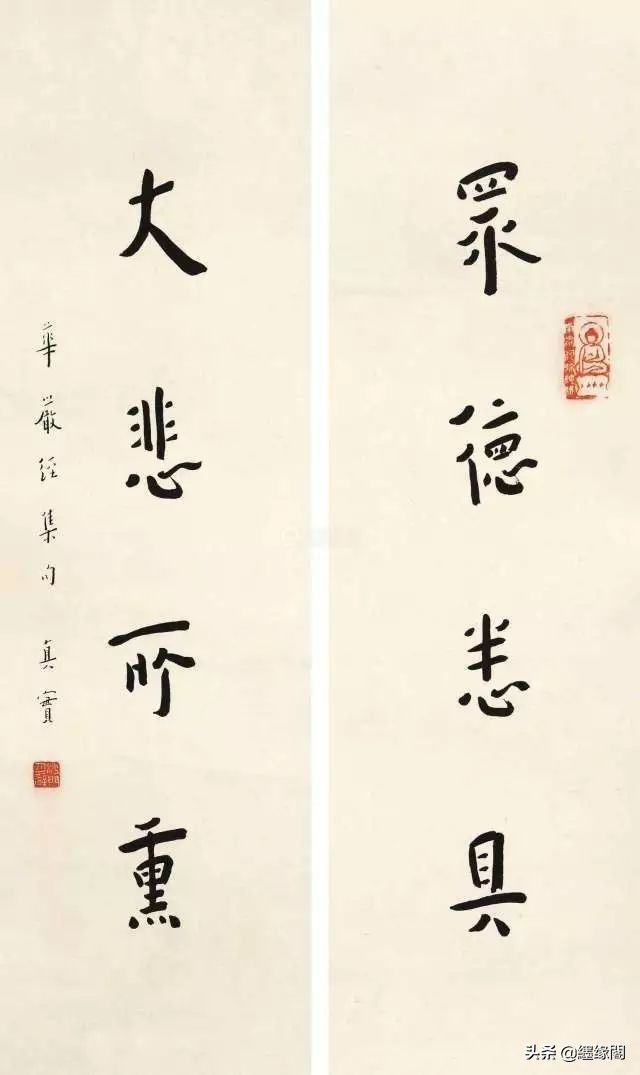 眾德悉具
大悲所熏
華嚴經集句 真實
头条 @纒缘閣